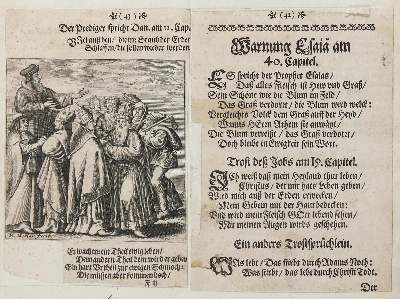 (41)
Der Prediger spricht Dan. am 12. Cap.
Viel auß den, die im Staub der Erden
Schlaffen, die sollen wieder werden
Erwachen ein Theil ewig leben/
Dem andern Theil dem wird er geben
Ein hart Urtheil zur ewigen Schmach:
Die müssen aber kommen doch/
F ij
(42)
Warnung Esaiä am
40. Capitel.
ES spricht der Prophet Esaias/
Daß alles Fleisch ist Hew und Graß/
Sein Schöne wie die Blum im Feld/
Das Graß verdorrt/ die Blum wird welck:
Vergleichts Volck dem Graß auff der Heyd/
Wanns HErrn Athem sie anwäht/
Die Blum verweltzt/ das Graß verdorrt/
Doch bleibt in Ewigkeit sein Wort.
Trost deß Jobs am 19. Capitel.
ICh weiß daß mein Heyland thut leben/
Christus/ der mir hats Leben geben/
Wird mich auß der Erden erwecken/
Mein Gebein mit der Haut bedecken:
Und wird mein Fleisch GOtt lebend sehen/
Mit meinen Augen wirds geschehen.
Ein anders Trostsprüchlein.
WAs lebt/ Das stirbt durch Adams Noth:
Was stirbt/ das lebt durch Christi Todt.
Der